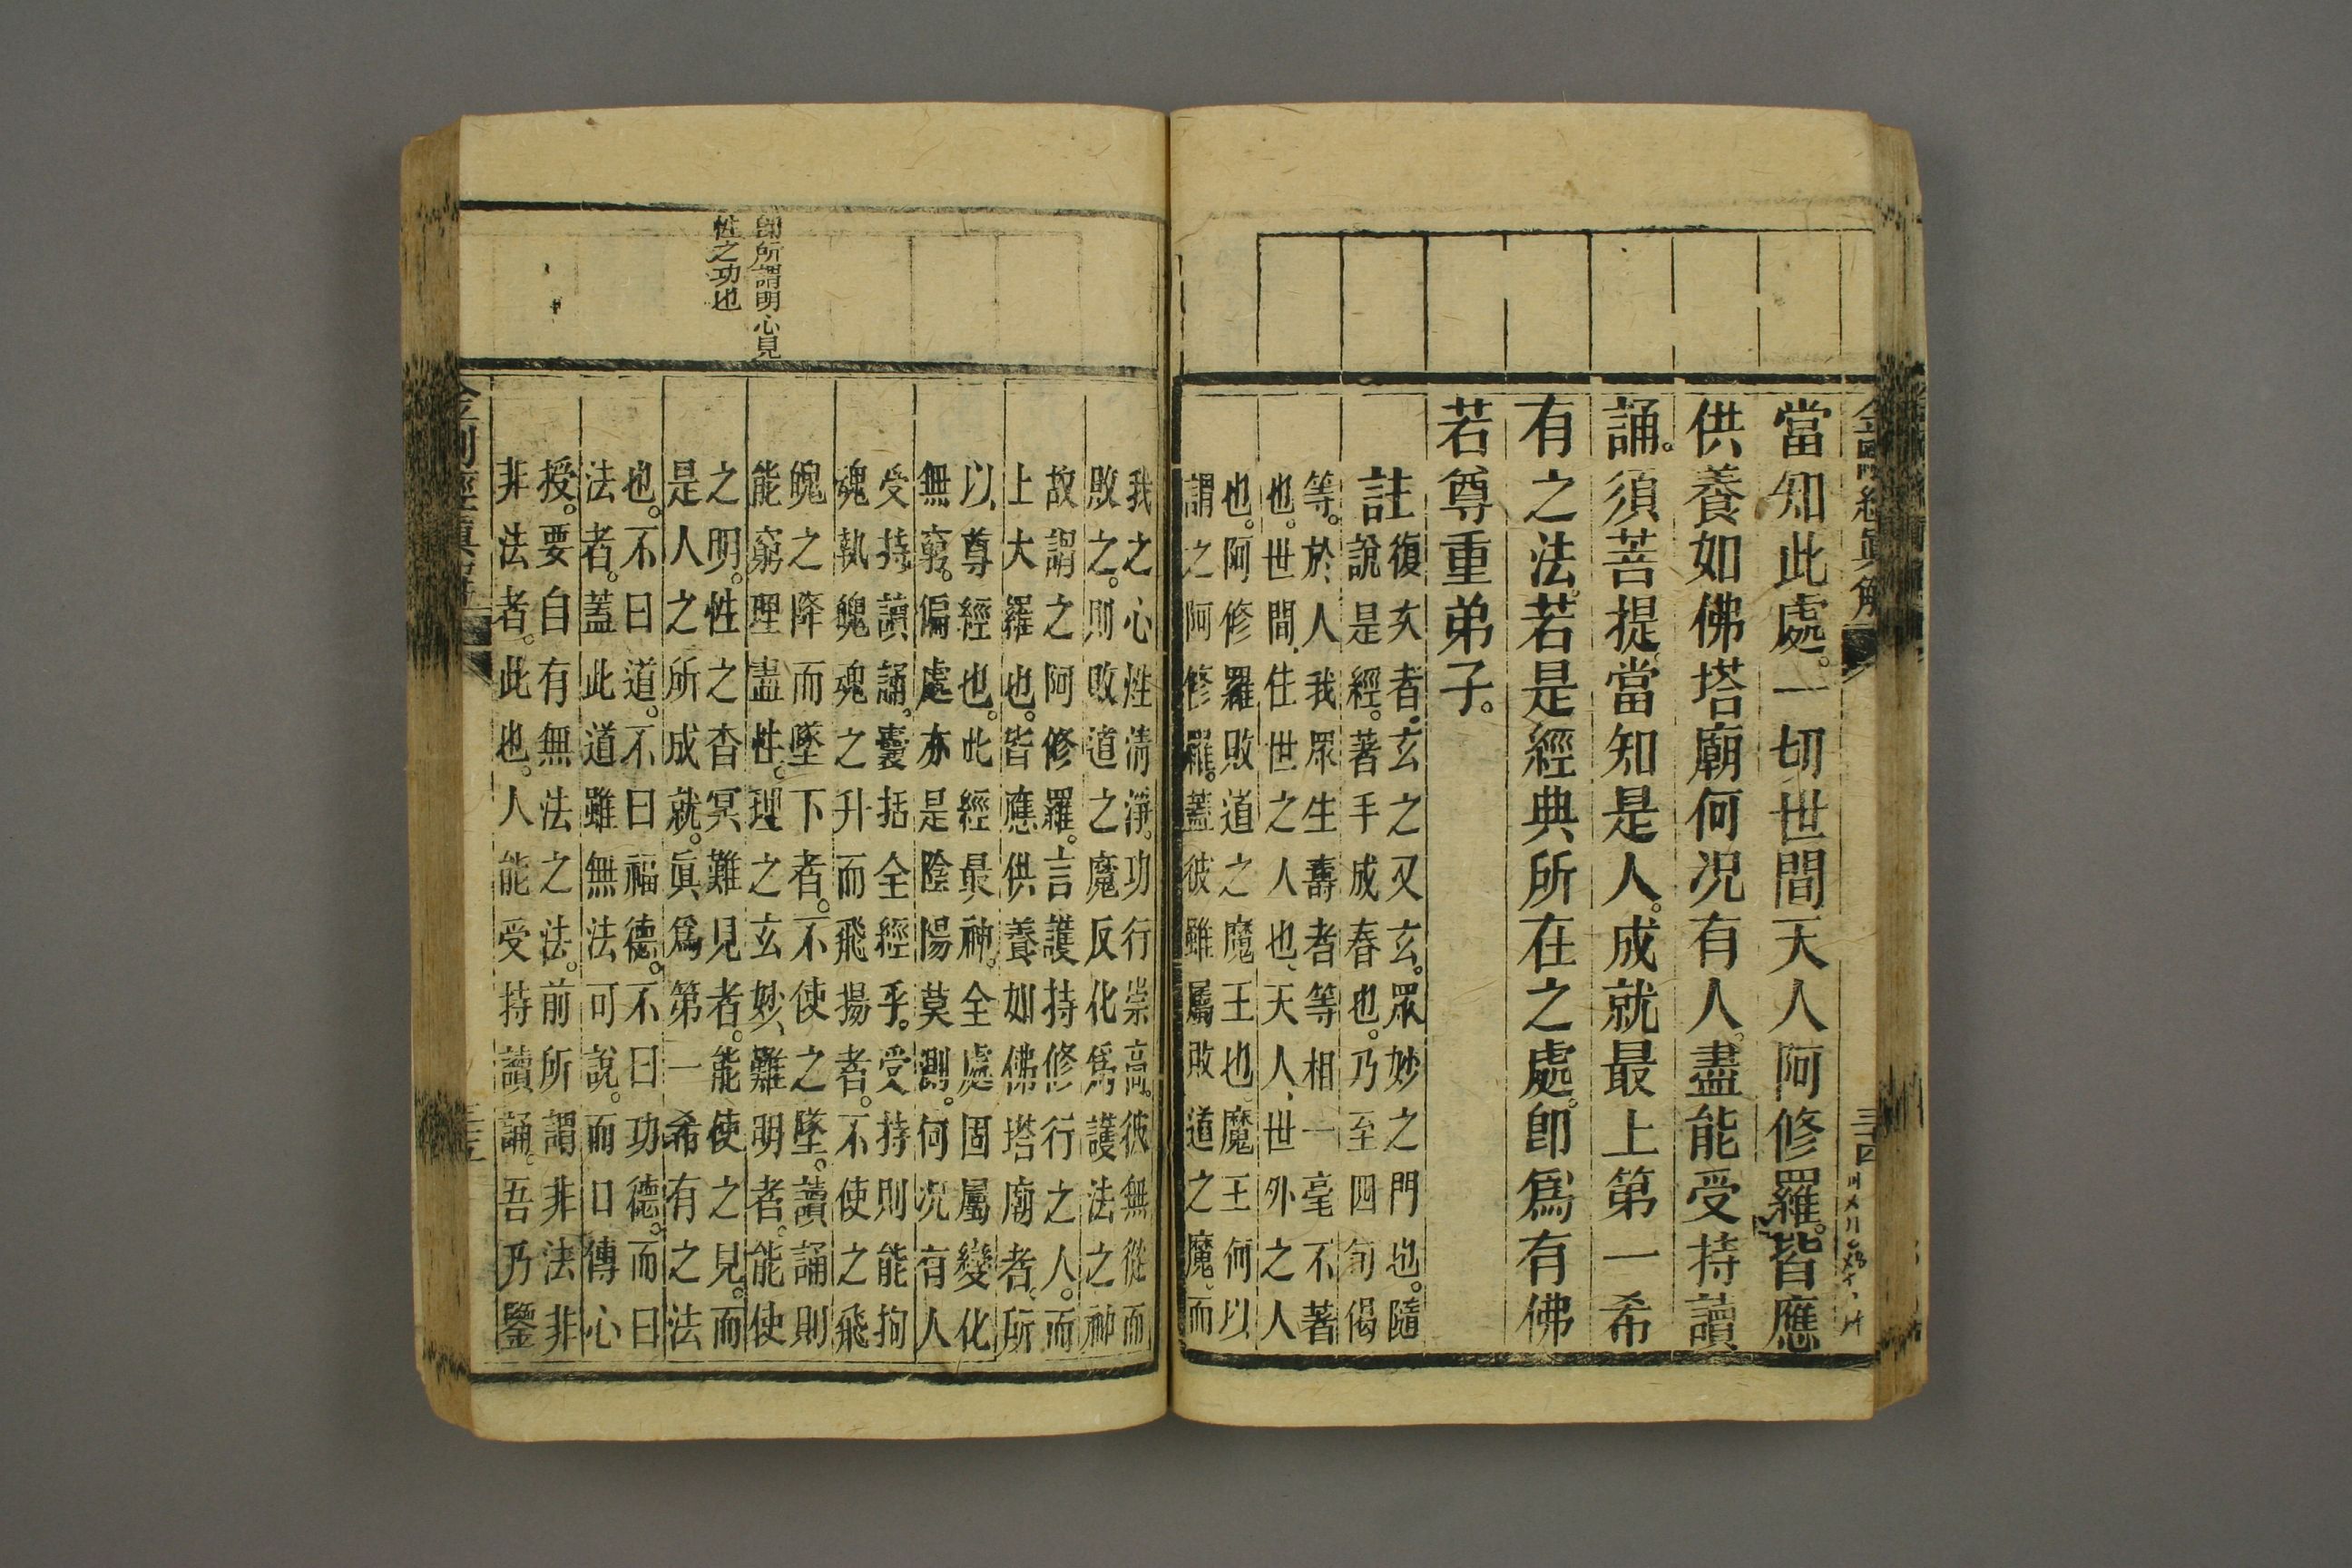 金剛經眞解
三十四
當知此處。一切世間天人阿修羅。皆應
供養如佛塔廟何况有人。盡能受持讀
誦。須菩提。當知是人。成就最上第一希
有之法。若是經典所在之處。卽爲有佛
若尊重弟子。
註
復次者。玄之又玄。眾妙之門也。隨
說是經。著手成春也。乃至四句偈
等。於人我眾生壽者等相一毫不著
也。世間、住世之人也、天人、世外之人
也。阿修羅敗道之魔王也、魔王何以
謂之阿修羅。蓋彼雖屬敗道之魔、而
卽所謂明心見
性之功也
我之心性淸淨。功行崇高。彼無從而
敗之。則敗道之魔反化爲護法之神
故謂之阿修羅。言護持修行之人。而
上大羅也。皆應供養如佛塔廟者。所
以尊經也。此經最神。全處固屬變化
無窮。偏處亦是陰陽莫測。何况有人
受持讀誦。囊括全經乎。受持則能拘
魂執魄魂之升而飛揚者。不使之飛
魄之降而墜下者。不使之墜。讀誦則
能窮理盡性。理之玄妙、難明者。能使
之明。性之杳冥難見者。能使之見。而
是人之所成就。眞爲第一希有之法
也。不曰道。不曰福德。不曰功德。而曰
法者。蓋此道雖無法可說。而口傳心
授。要自有無法之法。前所謂非法非
非法者。此也。人能受持讀誦。吾乃鑒